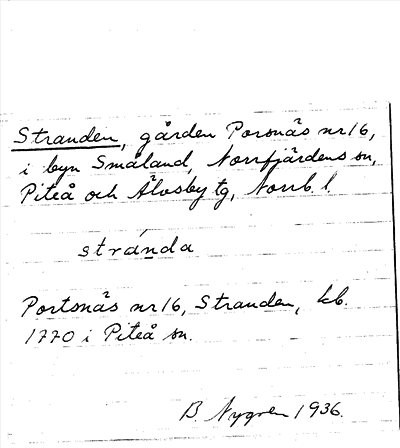 Stranden, gården Porsnäs nr 16,
i byn Småland, Norrfjärdens sn,
Piteå och Älvsby tg, Norrb. l.
stránda
Portsnäs nr 16, Stranden, kb.
1770 i Piteå sn.
B. Nygren 1936.